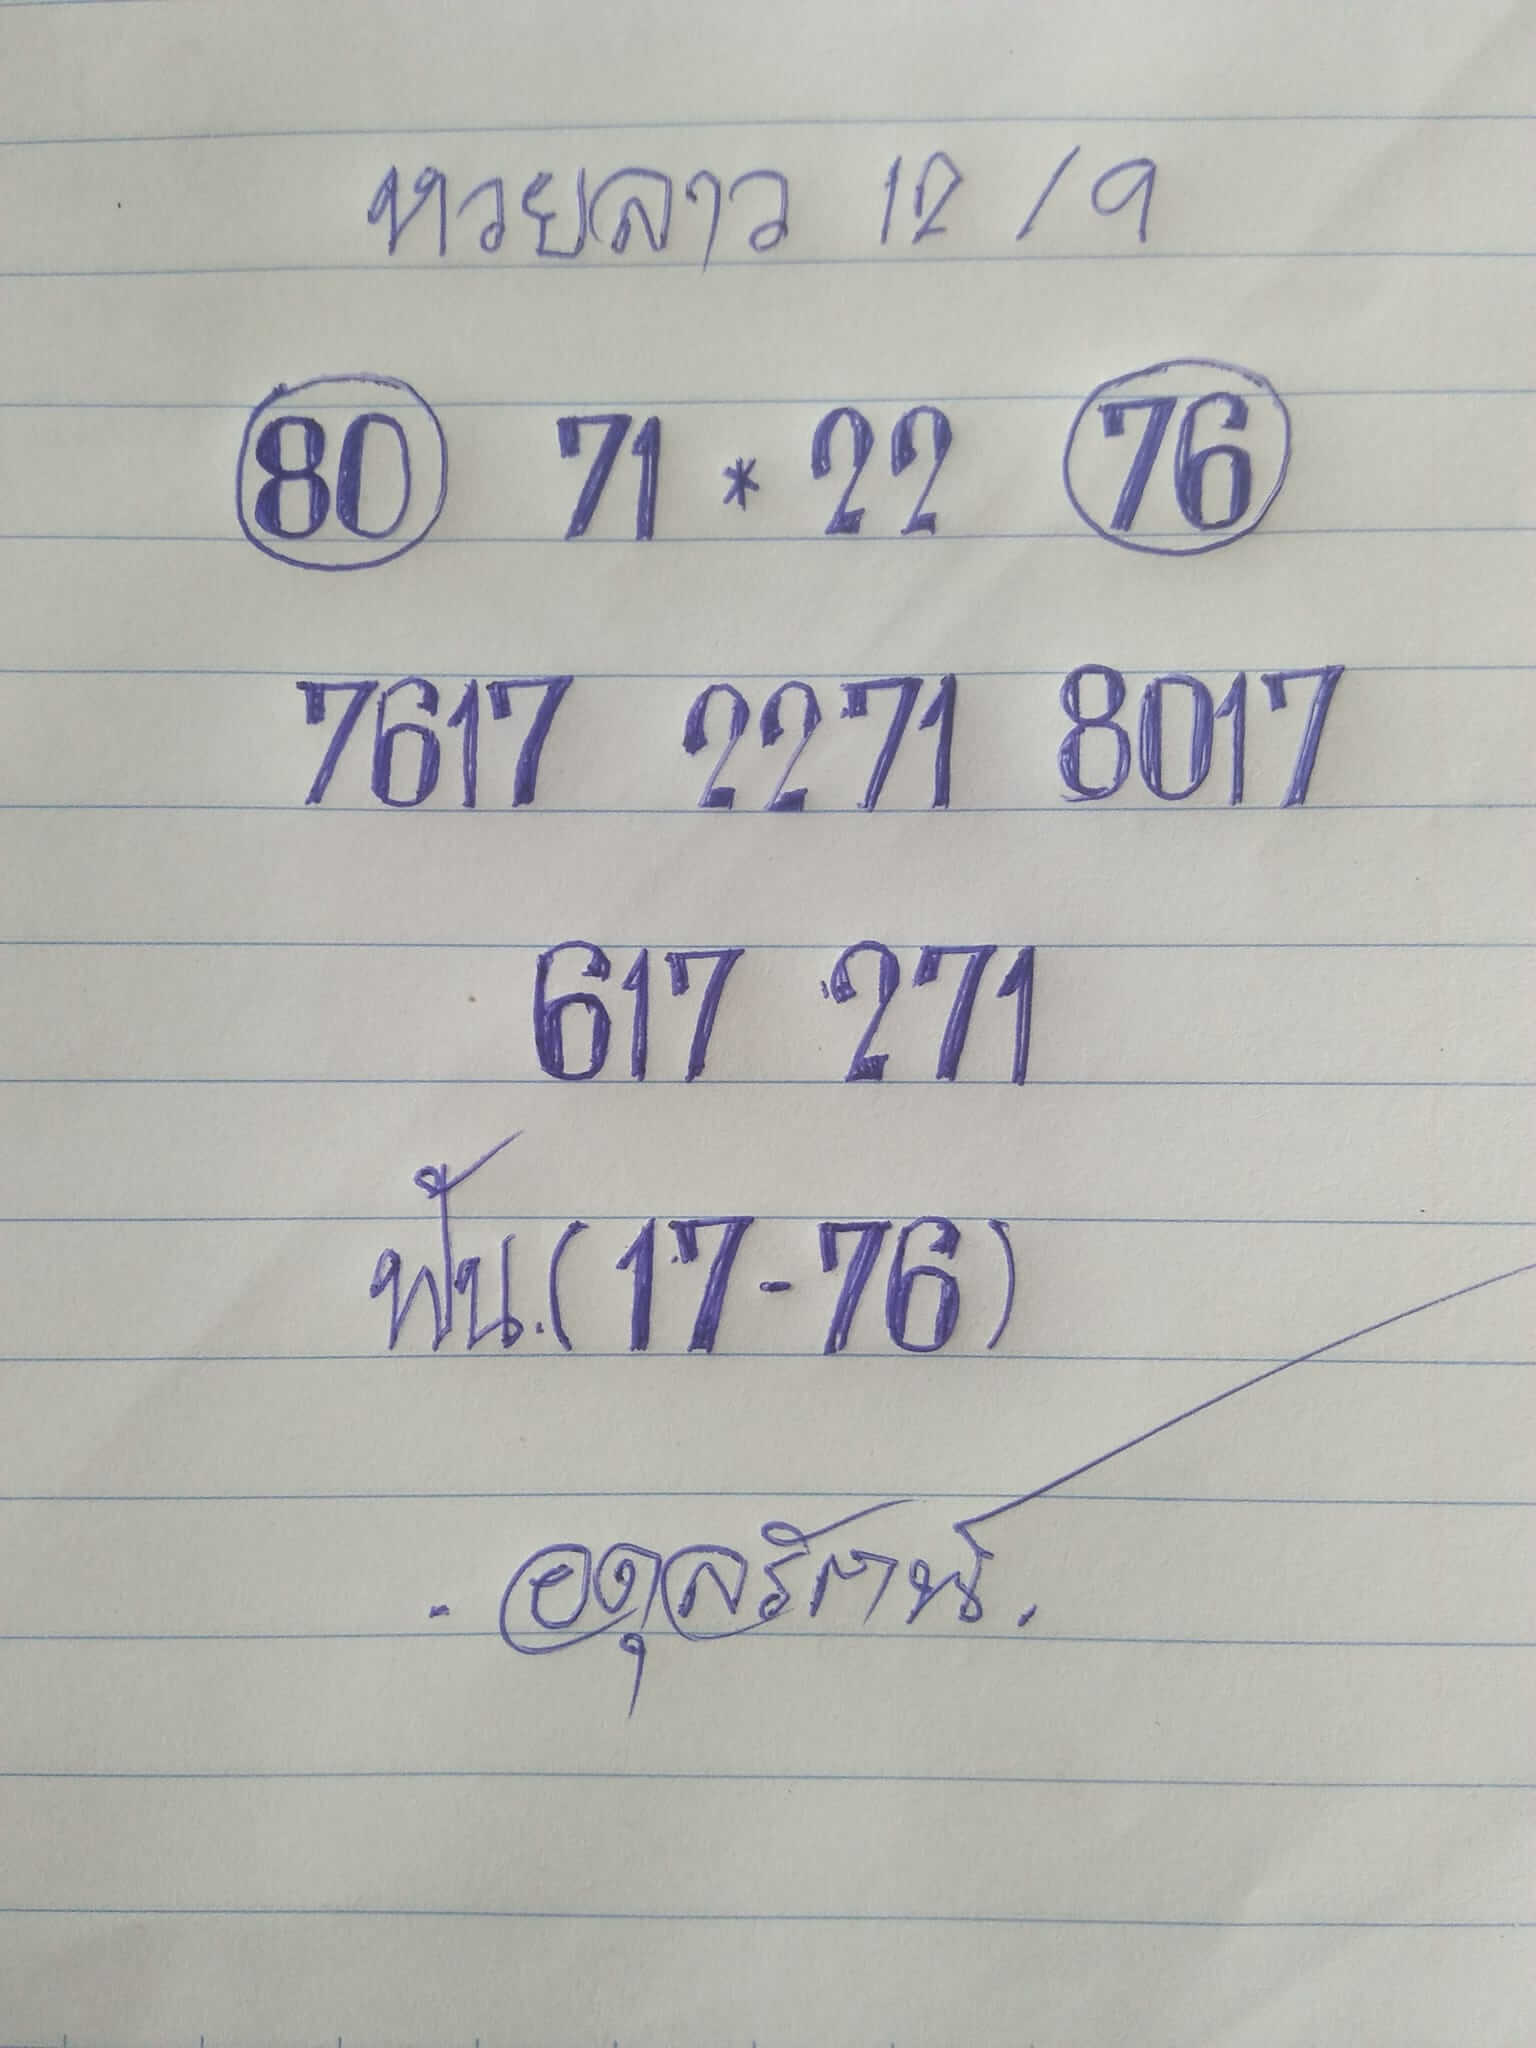 หวยลาว 12 / 9
80 71 * 22 76
7617 2271 8017
617 271
ฟัน.(17-76)
. อดุลรัตน์.